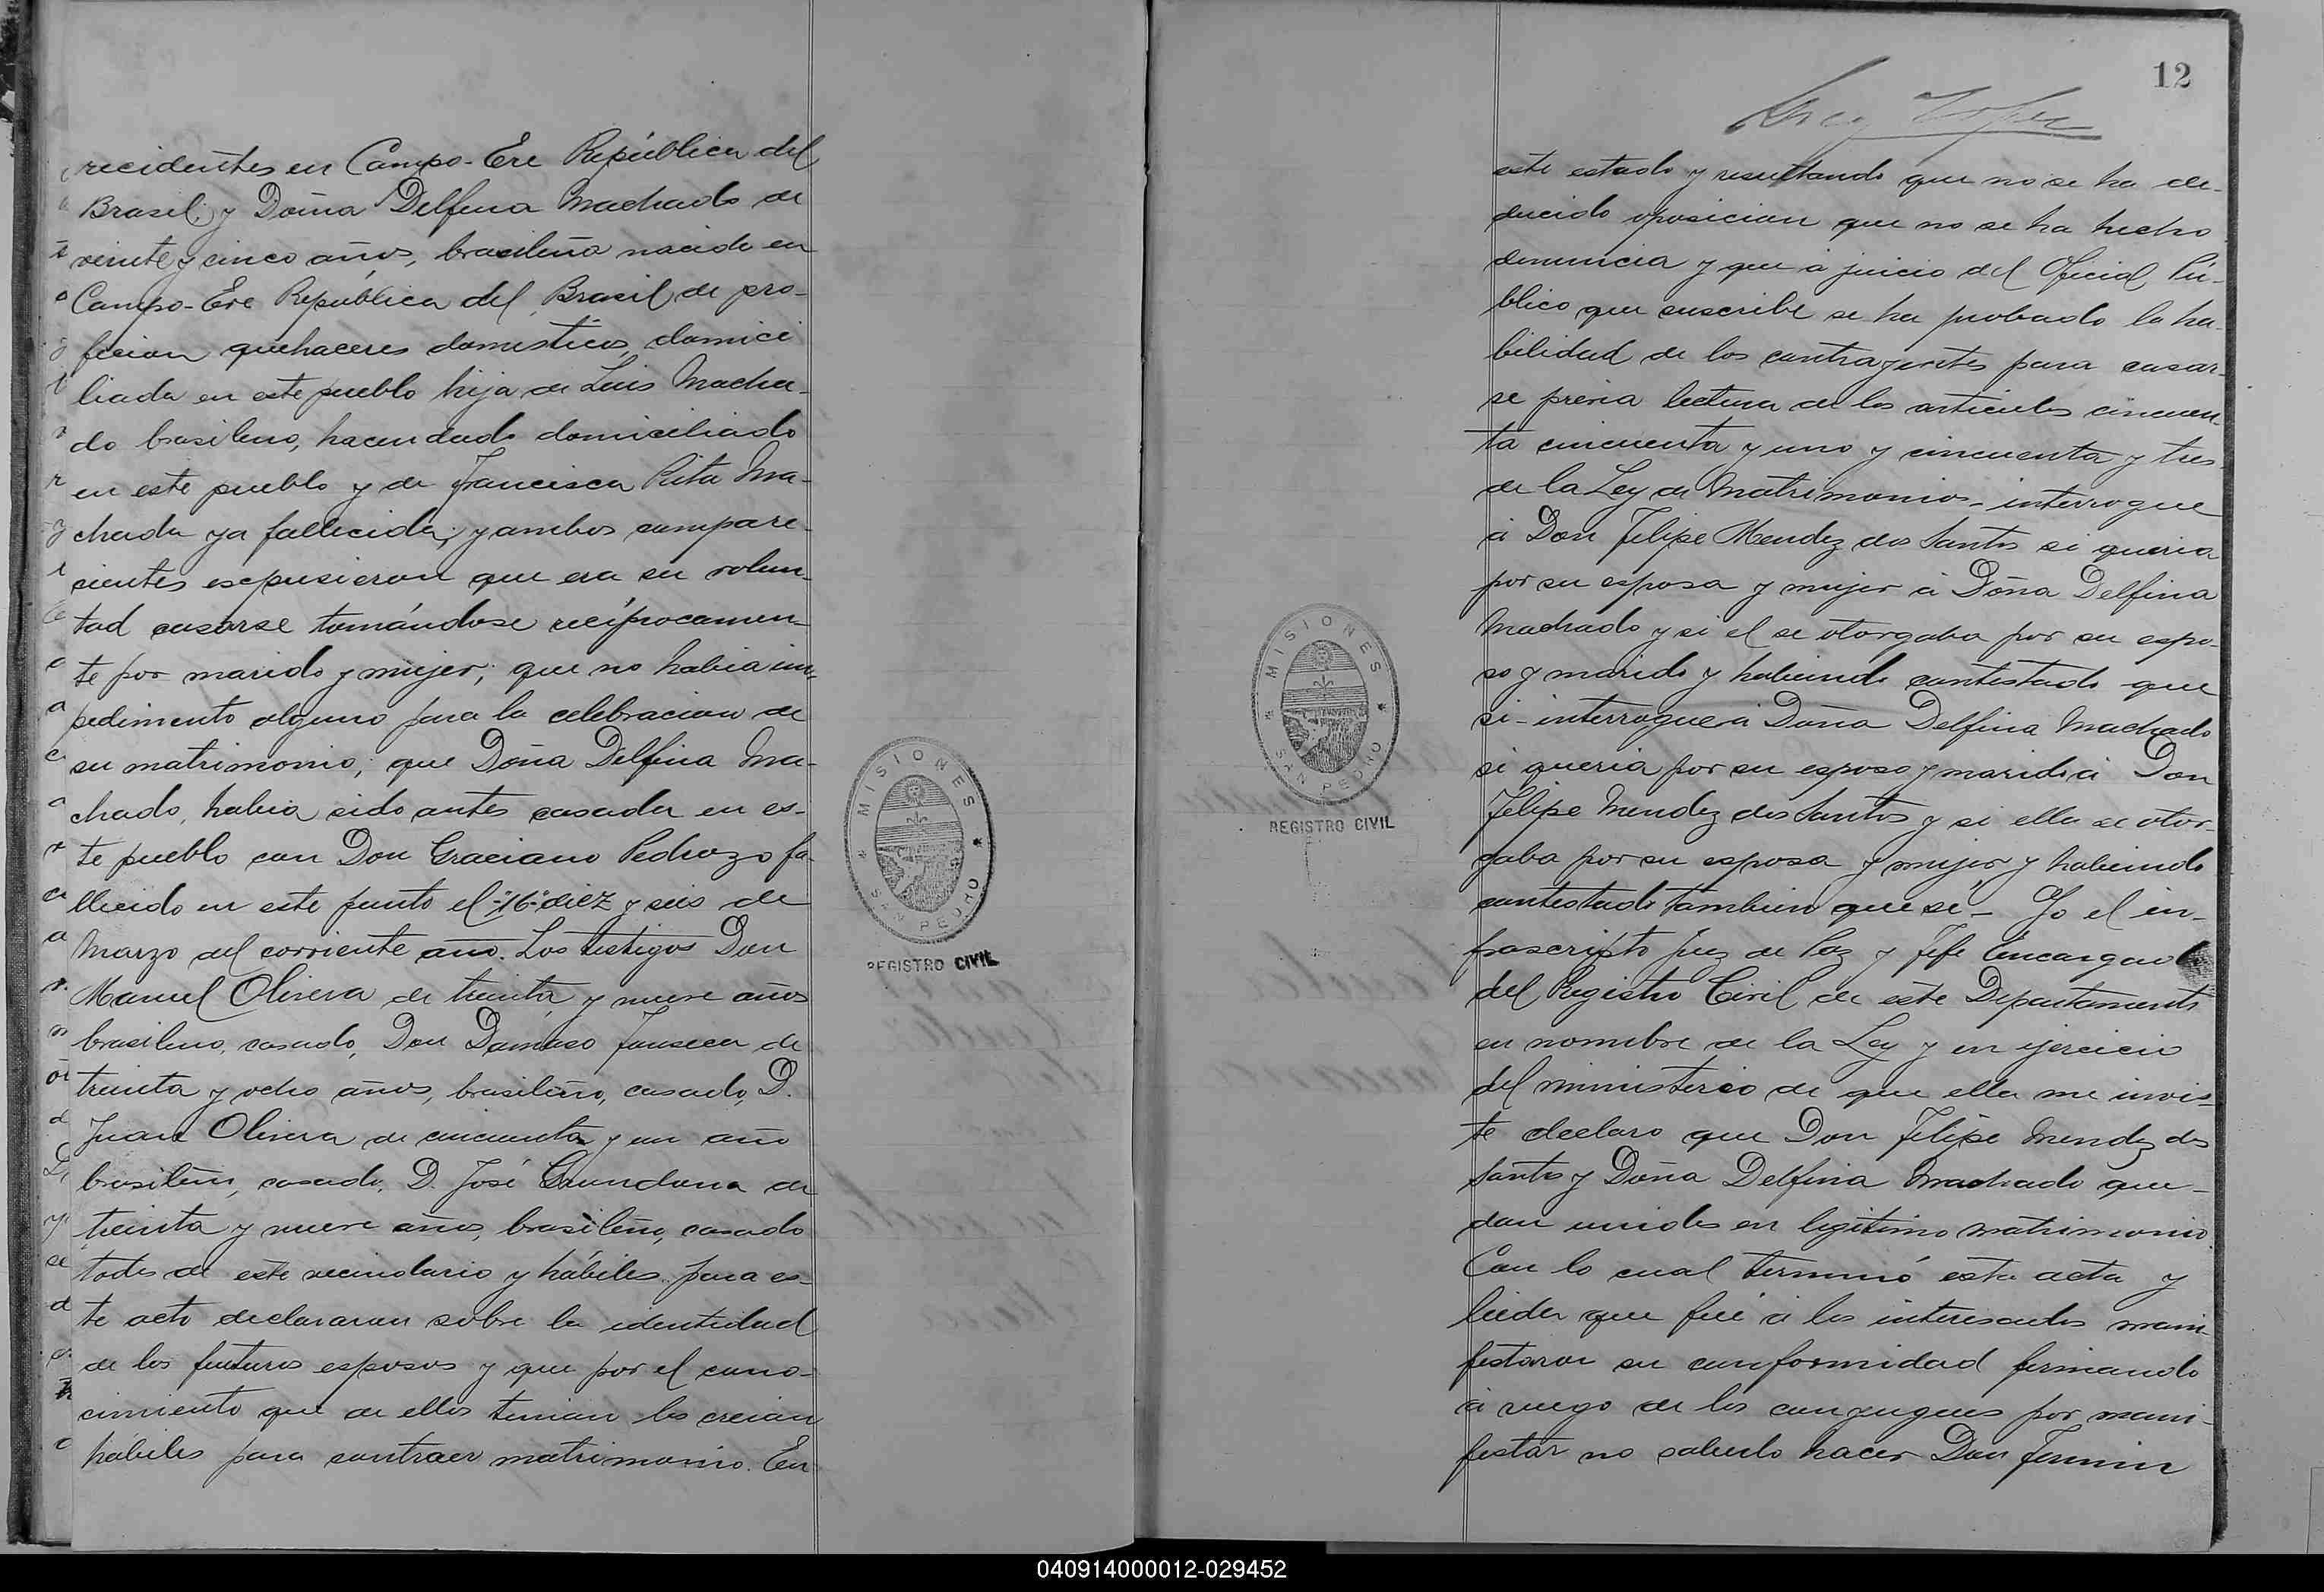 recidentes en Campo-Ere República del
Brasil; y Doña Delfina Machado de
veinte y cinco años, brasileña nacida en
Campo-Ere República del Brasil de pro-
fecion quehaceres domesticos, domici
liada en este pueblo hija de Luis Macha-
do brasileno, hacendado domiciliado
en este pueblo y de Francisca Rita Ma-
chada ya fallecida; y ambos compare-
cientes escpusieron que era su volun-
tad casarse tomándose recíprocamen-
te por marido y mujer; que no habia im-
pedimento alguno para la celebracion de
su matrimonio; que Doña Delfina Ma-
chado, habia sido antes casada en es-
te pueblo con Don Graciano Pedrozo fa-
llecido en este punto el "16" diez y seis de
Marzo del corriente año. Los testigos Don
Manuel Olivera de treinta y nueve años
brasileno, casado, Don Damaso Fonseca de
treinta y ocho años, brasileño, casado, D.
Juan Olivera de cincuenta y un año
brasileño, casado, D. José de
treinta y nueve años, brasileño, casado
todos de este vecindario y hábiles para es-
te acto declararon sobre la identidad
de los futuros esposos y que por el cono-
cimiento que de ellos tenian los creian
hábiles para contraer matrimonio. En
12
este estado y resultando que no se ha de-
ducido oposicion que no se ha hecho
denuncia y que á juicio del Oficial Pú-
blico que suscribe se ha probado la ha-
bilidad de los contrayentes para casar-
se previa lectura de los articulos cincuen-
ta cincuenta y uno y cincuenta y tres
de la Ley de Matrimonios - interrogue
á Don Felipe Mendez dos Santos si queria
por su esposa y mujer á Doña Delfina
Machado y si el se otorgaba por su espo-
so y marido y habiendo contestado que
si - interrogue á Doña Delfina Machado
si queria por su esposo y marido á Don
Felipe Mendez dos Santos y si ella se otor-
gaba por su esposa y mujer y habiendo
contestado tambien que si - Yo el in-
frascripto Juez de Paz y Jefe Encargado
del Registro Civil de este Departamento
en nombre de la Ley y en ejercicio
del ministerio de que ella me invis-
te declaro que Don Felipe Mendez dos
Santos y Doña Delfina Machado que-
dan unidos en legitimo matrimonio
Con lo cual terminó esta acta y
leida que fué á los interesados mani-
festaron su conformidad firmando
á ruego de los conyugues por mani-
festar no saberlo hacer Don Fermin
MISIONES
SAN PEDRO
REGISTRO CIVIL
MISIONES
SAN PEDRO
REGISTRO CIVIL
040914000012-029452